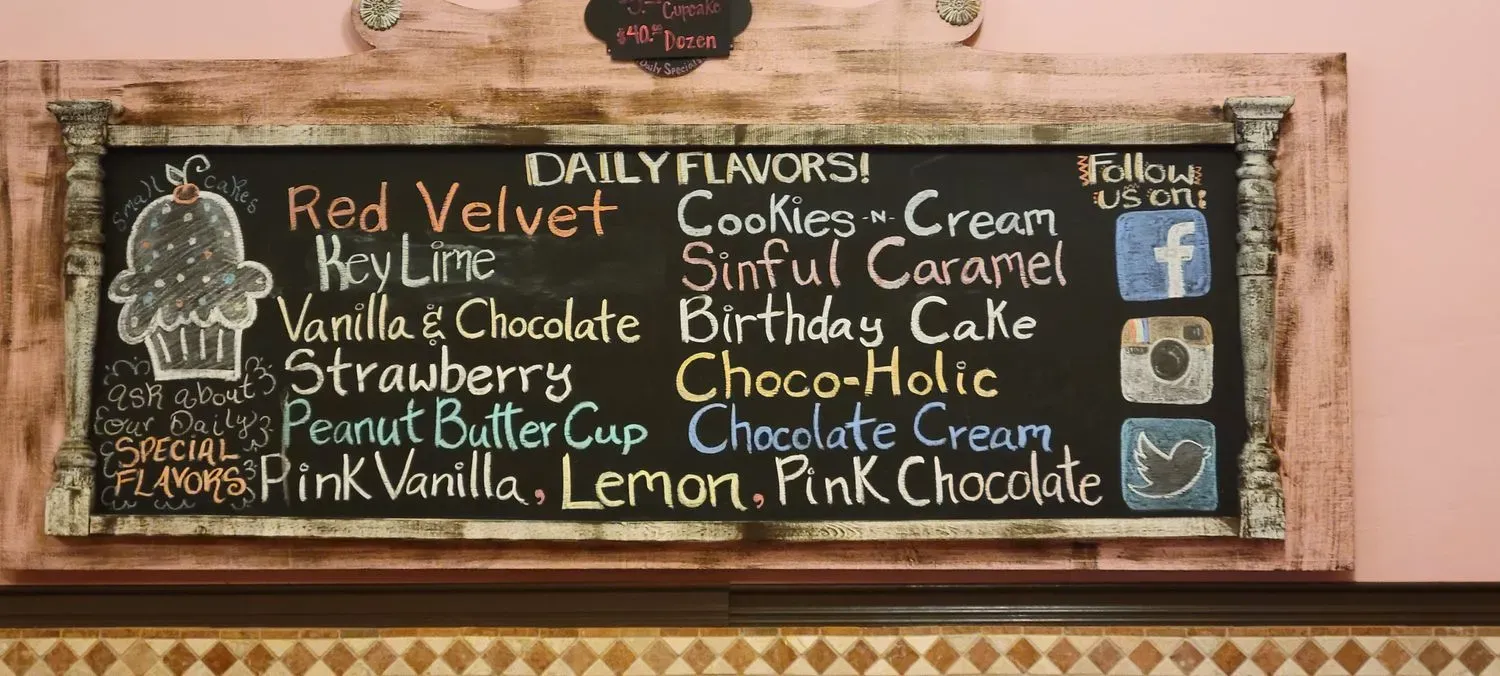 Cupcake
$40.00 Dozen
Daily Specials
DAILY FLAVORS!
small cakes
Red Velvet
Key Lime
Vanilla & Chocolate
Strawberry
Peanut Butter Cup
Cookies-N-Cream
Sinful Caramel
Birthday Cake
Choco-Holic
Chocolate Cream
Pink Vanilla, Lemon, Pink Chocolate
ask about
our Daily
SPECIAL
FLAVORS
Follow
us on:
f